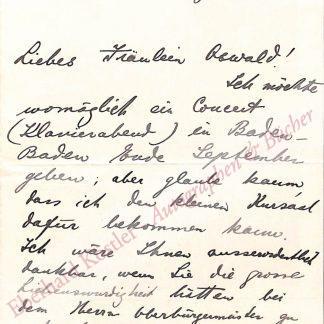 Liebes Fräulein Oswald!
Ich möchte
womöglich ein Concert
(Klavierabend) in Baden-
Baden Ende September
geben; aber glaube kaum
dass ich den kleinen Kursaal
dafür bekommen kann.
Ich wäre Ihnen ausserordentlich
dankbar, wenn Sie die grosse
Liebenswürdigkeit hätten bei
dem Herrn Oberbürgermeister
Eberhard Köstler Autographen & Bücher